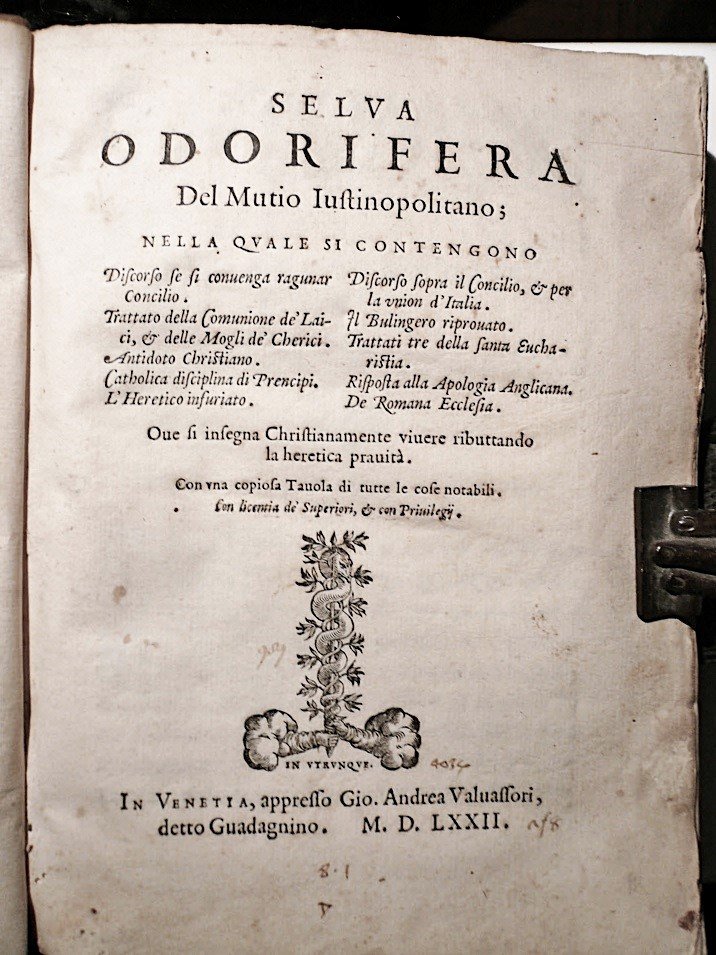 SELVA
ODORIFERA
Del Mutio Iuſtinopolitano;
NELLA QVALE SI CONTENGONO
Diſcorſo ſe ſi conuenga ragunar
Concilio.
Trattato della Comunione de' Lai-
ci, & delle Mogli de' Cherici.
Antidoto Chriſtiano.
Catholica diſciplina di Prencipi.
L'Heretico infuriato.
Diſcorſo ſopra il Concilio, & per
la vnion d'Italia.
Il Bulingero riprouato.
Trattati tre della ſanta Eucha-
riſtia.
Riſpoſta alla Apologia Anglicana.
De Romana Eccleſia.
Oue ſi inſegna Chriſtianamente viuere ributtando
la heretica prauità.
Con vna copioſa Tauola di tutte le coſe notabili.
Con licentia de' Superiori, & con Priuilegij.
IN VTRVNQVE.
IN VENETIA, appreſſo Gio. Andrea Valuaſſori,
detto Guadagnino. M. D. LXXII.
8.1